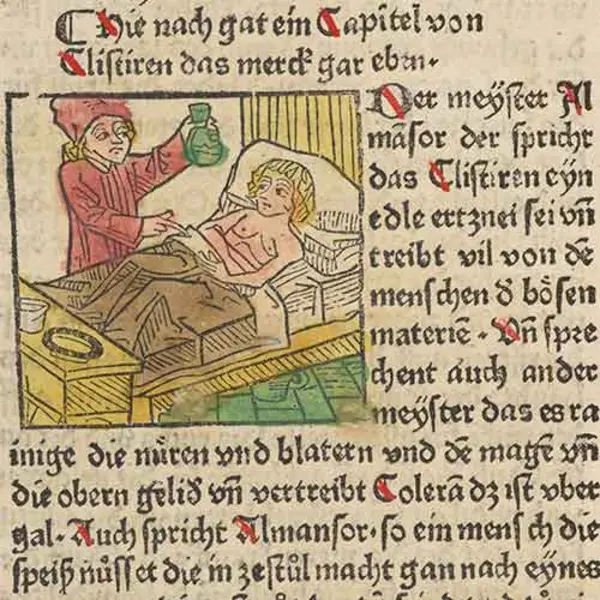 Hie nach gat ein Capitel von
Clistiren das merck gar eben.
Der meÿster Al
māsor der spricht
das Clistiren eÿn
edle ertznei sei vñ
treibt vil von dē
menschen d bösen
materiē. Vñ spre
chent auch ander
meÿster das es ra
inige die nüren vnd blatern vnd dē magē vñ
die obern gelid vñ vertreibt Colerā dz ist vber
gal. Auch spricht Almansor. so ein mensch die
speiß nüsset die in zestůl macht gan nach eÿnes